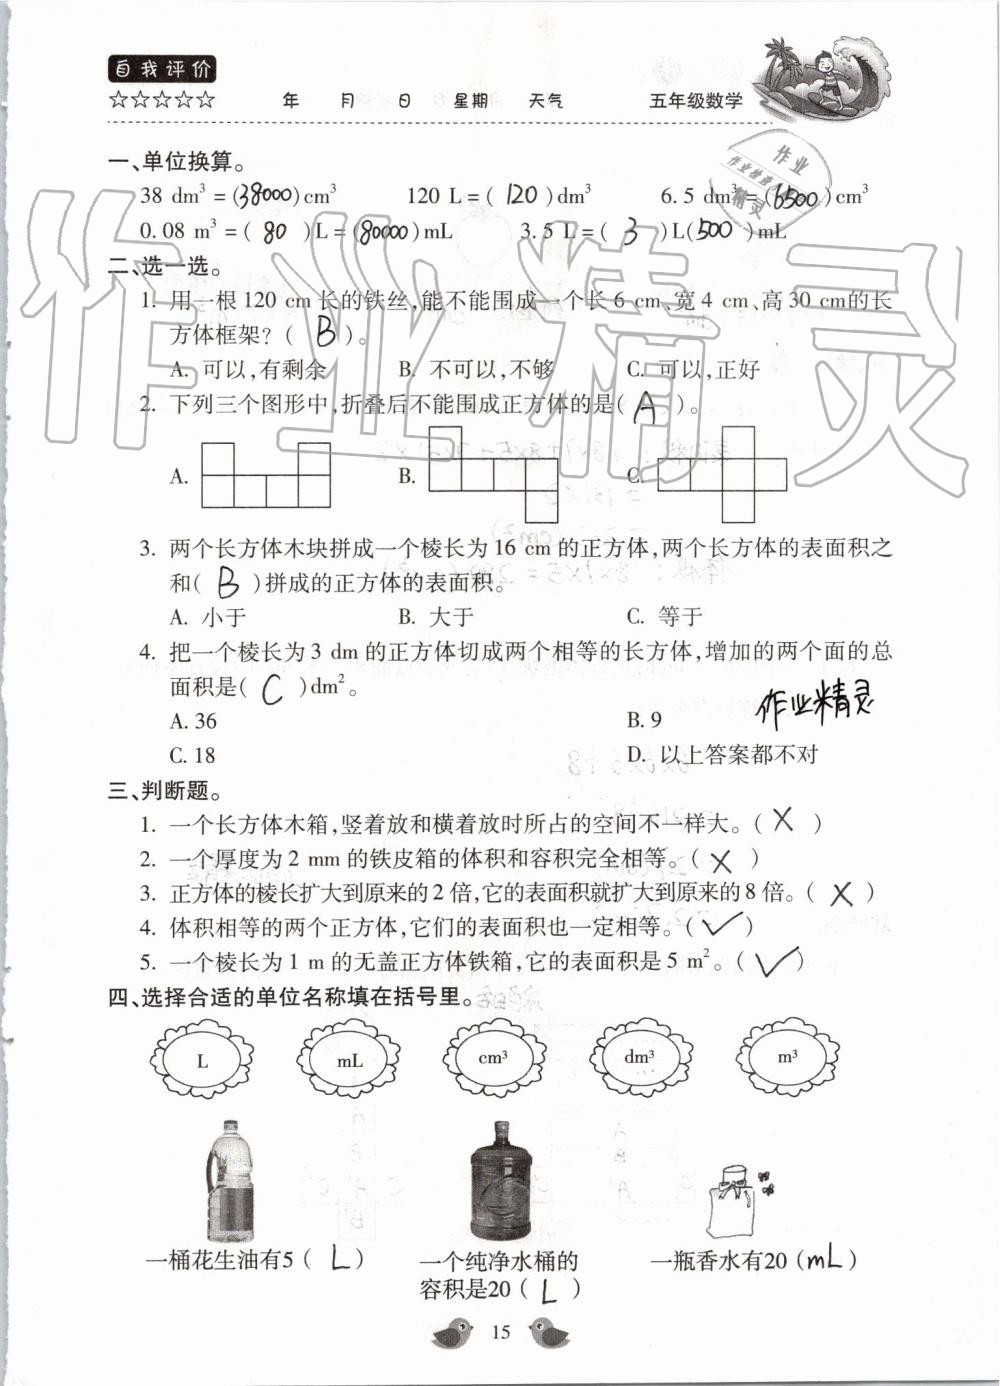 自我评价
☆☆☆☆☆ 年 月 日 星期 天气 五年级数学
作业
作业检查
精灵
一、单位换算。
38 dm³=(38000)cm³ 120 L=( 120 )dm³ 6.5 dm³=(6500)cm³
0.08 m³=( 80 )L=(80000)mL 3.5 L=( 3 )L(500 )mL
二、选一选。
1. 用一根120 cm长的铁丝,能不能围成一个长6 cm、宽4 cm、高30 cm的长
方体框架?( B )。
A. 可以,有剩余 B. 不可以,不够 C. 可以,正好
2. 下列三个图形中,折叠后不能围成正方体的是( A )。
A. B. C.
3. 两个长方体木块拼成一个棱长为16 cm的正方体,两个长方体的表面积之
和( B )拼成的正方体的表面积。
A. 小于 B. 大于 C. 等于
4. 把一个棱长为3 dm的正方体切成两个相等的长方体,增加的两个面的总
面积是( C )dm²。
A. 36 B. 9
作业精灵
C. 18 D. 以上答案都不对
三、判断题。
1. 一个长方体木箱,竖着放和横着放时所占的空间不一样大。( × )
2. 一个厚度为2 mm的铁皮箱的体积和容积完全相等。( × )
3. 正方体的棱长扩大到原来的2倍,它的表面积就扩大到原来的8倍。( × )
4. 体积相等的两个正方体,它们的表面积也一定相等。( ✓ )
5. 一个棱长为1 m的无盖正方体铁箱,它的表面积是5 m²。( ✓ )
四、选择合适的单位名称填在括号里。
L mL cm³ dm³ m³
一桶花生油有5( L ) 一个纯净水桶的 一瓶香水有20(mL)
容积是20( L )
15
作业精灵